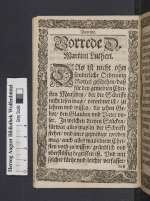 Vorrede.
Vorrede D.
Martini Lutheri.
Das ist nicht ohn
sonderliche Ordnung
Gottes geschehen / daß
für den gemeinen Chri-
sten Menschen / der die Schrifft
nicht lesen mag / verordnet ist / zu
lehren und
Gebot / den Glauben und Vater un-
ser. In welchen dreyen Stücken /
fürwar alles was in der Schrifft
stehet / und immer geprediget werden
mag / auch alles was einem Christen
noth ist zu wissen / gründlich und
überflüssig begriffen ist. Und
solcher Kürtze und leichte verfasset
Herzog August Bibliothek Wolfenbüttel